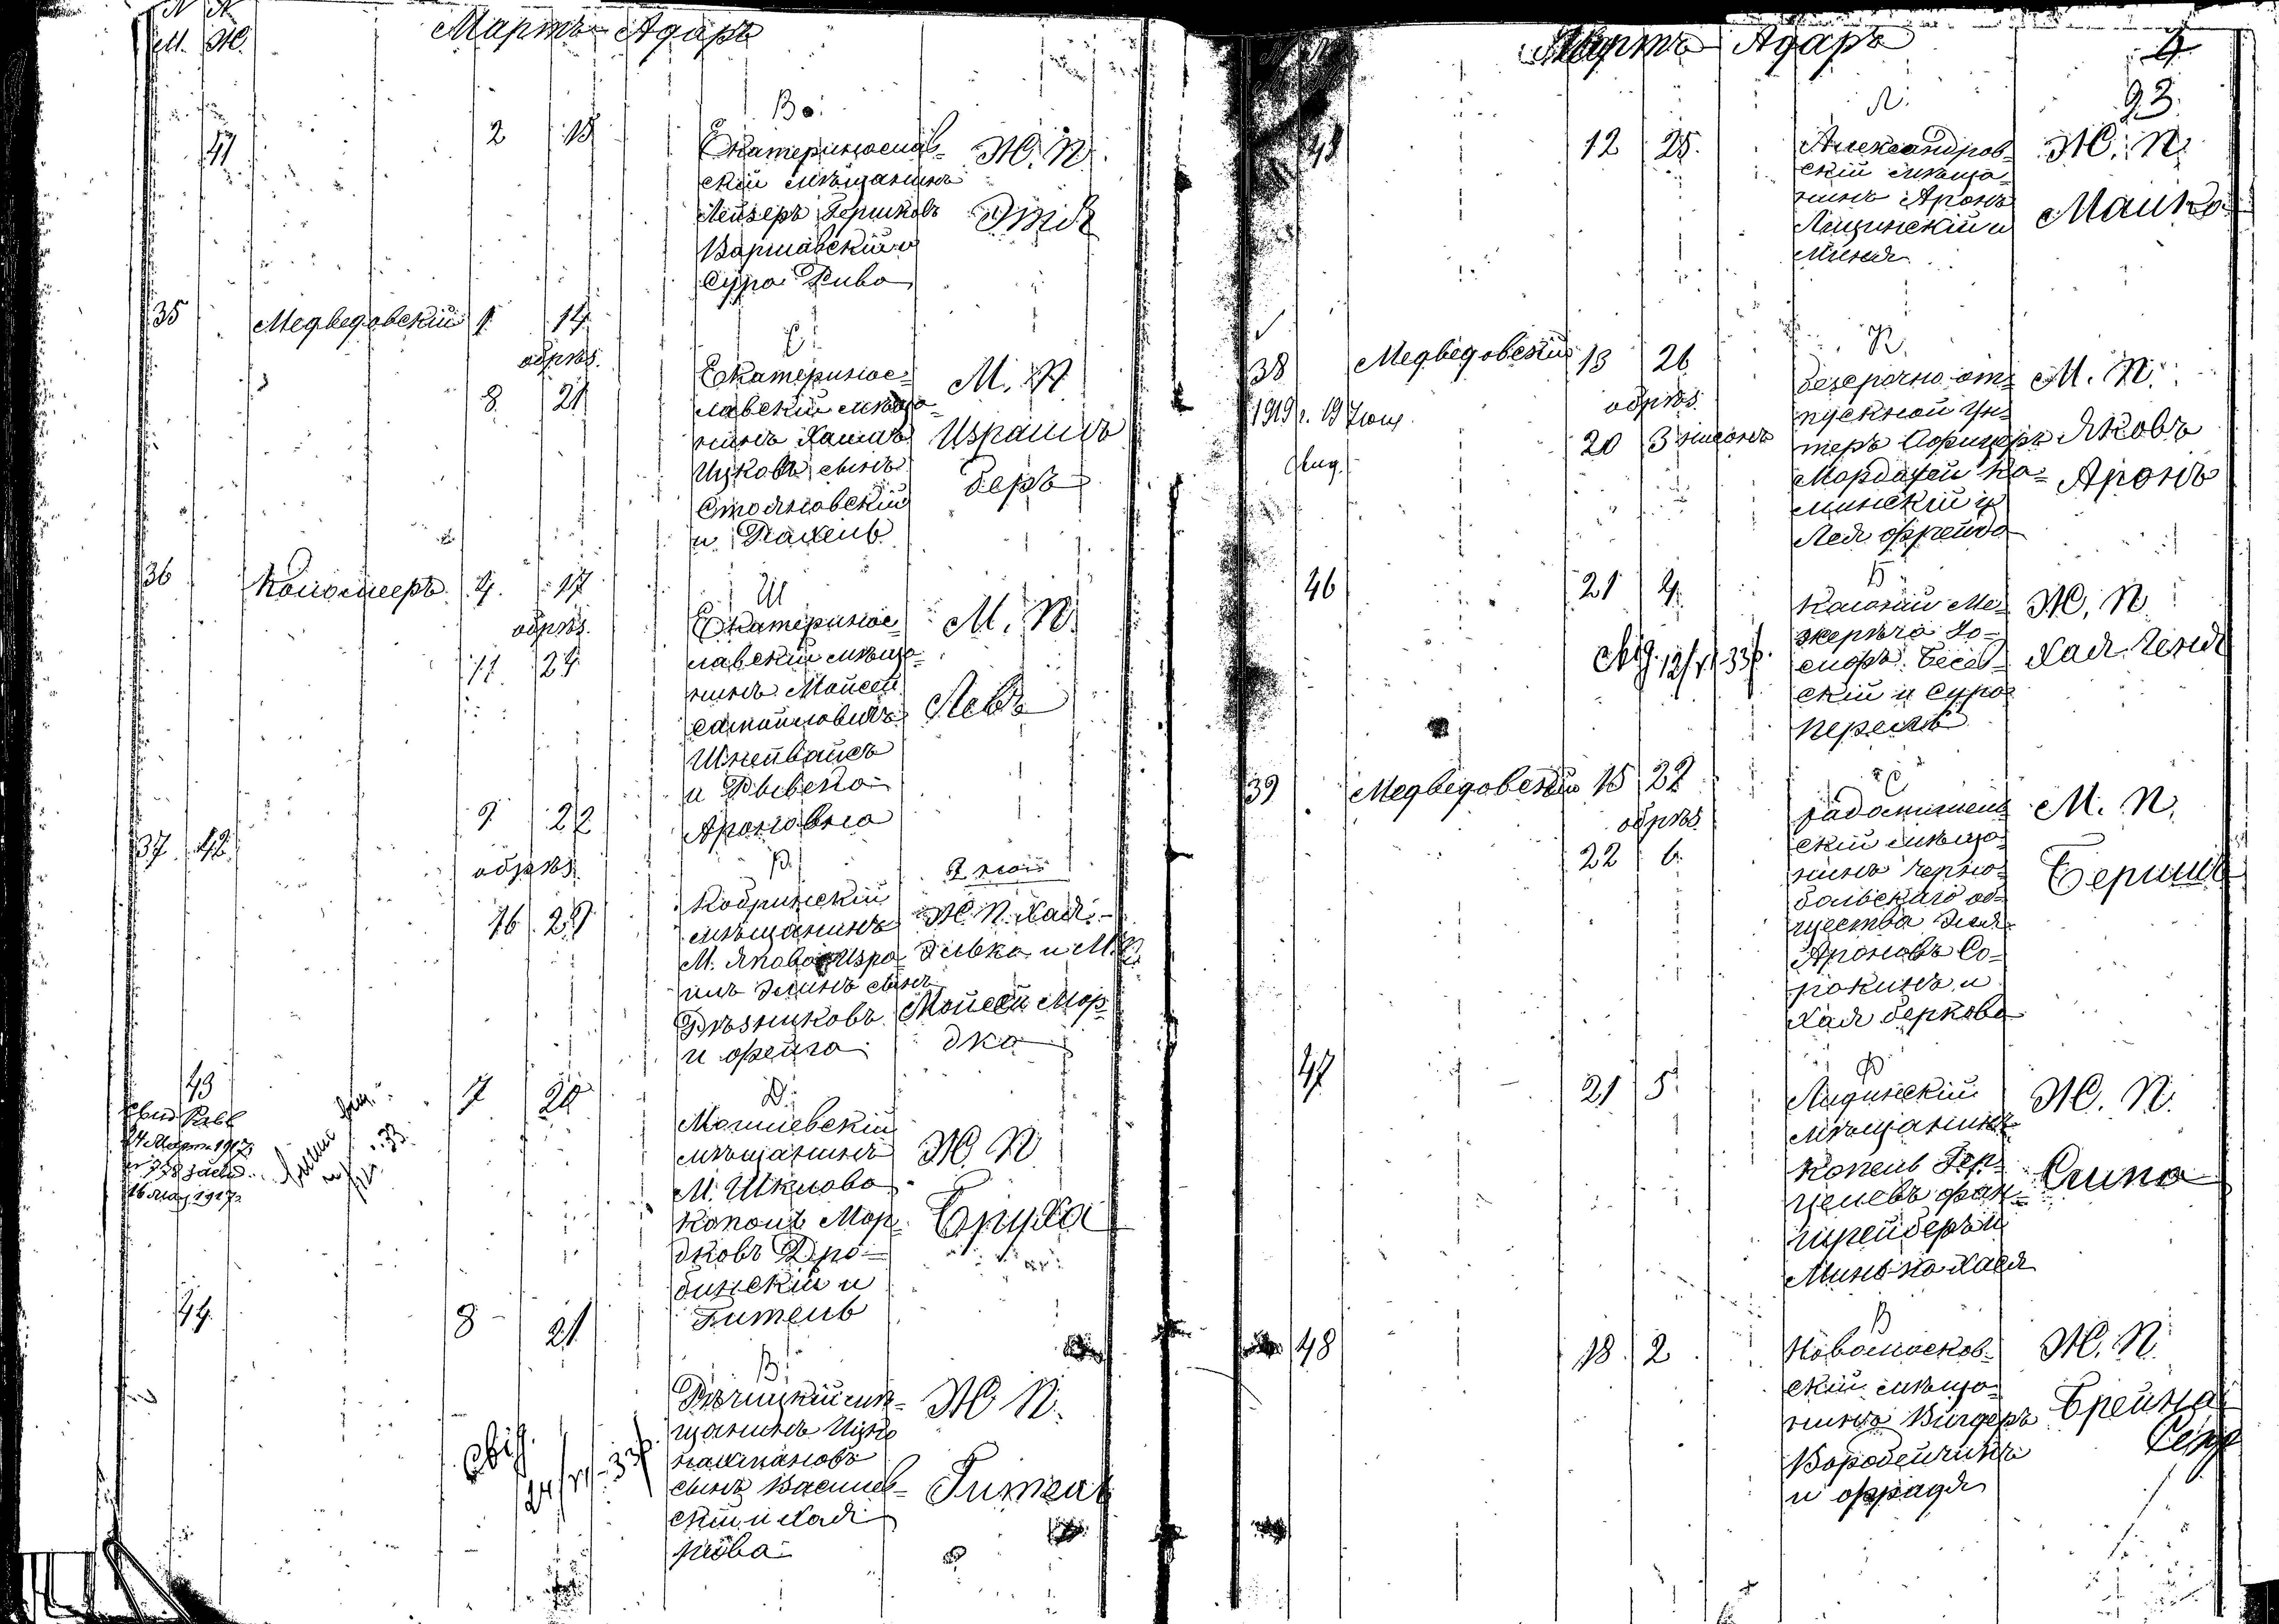 N N
М. Ж.
Мартъ Адаръ
В.
41 2 15
Екатеринослав-
скій мѣщанинъ
Лейзеръ Гершковъ
Варшавскій и
Сура Рива
Ж. П.
Этя
35 Медведовскій 1 14
обрѣз.
8 21
С
Екатеринос-
лавскій мѣща-
нинъ Хаимъ
Ицковъ сынъ
Стояновскій
и Рахель
М. П.
Израиль
Беръ
36 4 17
обрѣз.
11 24
Ш
Екатеринос-
лавскій мѣща-
нинъ Мойсей
Самойловичъ
Шнейвайсъ
и Рывека
Ароновна
М. П.
Левъ
37 42 9 22
обрѣз.
16 29
Р.
Кобринскій
мѣщанинъ
М. Яново Изра-
иль Элинъ сынъ
Рѣзниковъ
и Фейга
Ж. П. Хая-
Элька и М. П.
Мойсей Мор-
дко
43 7 20
24 Марта 1917
16 Мая 1917
Д.
Могилевскій
мѣщанинъ
М. Шклова
Копель Мор-
дковъ Дро-
бинскій и
Гитель
Ж. П.
Бруха
44 8 21
В.
Рѣчицкій мѣ-
щанинъ Ицко
Нахмановъ
сынъ Василев-
скій и Хая
Рива
Ж. П.
Гитель
Мартъ Адаръ
4
93.
Л.
12 25.
Александров-
скій мѣща-
нинъ Аронъ
Лещинскій и
Миня
Ж. П.
38 Медведовскій 13 26
обрѣз.
1919 г. 19 Июня
20 3 нисонъ
К.
безсрочно-от-
пускной ун-
теръ Офицеръ
Мордахей Ка-
минскій и
Лея Фрейда
М. П.
Яковъ
Аронъ
46 21 4
Б
Колоніи Ме-
жеричъ Іо-
сифъ Бесед-
скій и Сура
Перель
Ж. П.
Хая Геня
39 Медведовскій 15 22
обрѣз.
22 6
С
Радомысль-
скій мѣща-
нинъ Черно-
бальскаго об-
щества Элья
Ароновъ Со-
рокинъ и
Хая Беркова
М. П.
Бериль
47 21 5
Ф
Лидинскій
мѣщанинъ
Копель Гер-
целевъ Фан-
шрейберъ и
Минька Хася
Ж. П.
Сима
48 18 2
В
Новомосков-
скій мѣща-
нинъ Вигдеръ
Воробейчикъ
и Фрадя
Ж. П.
Брейна